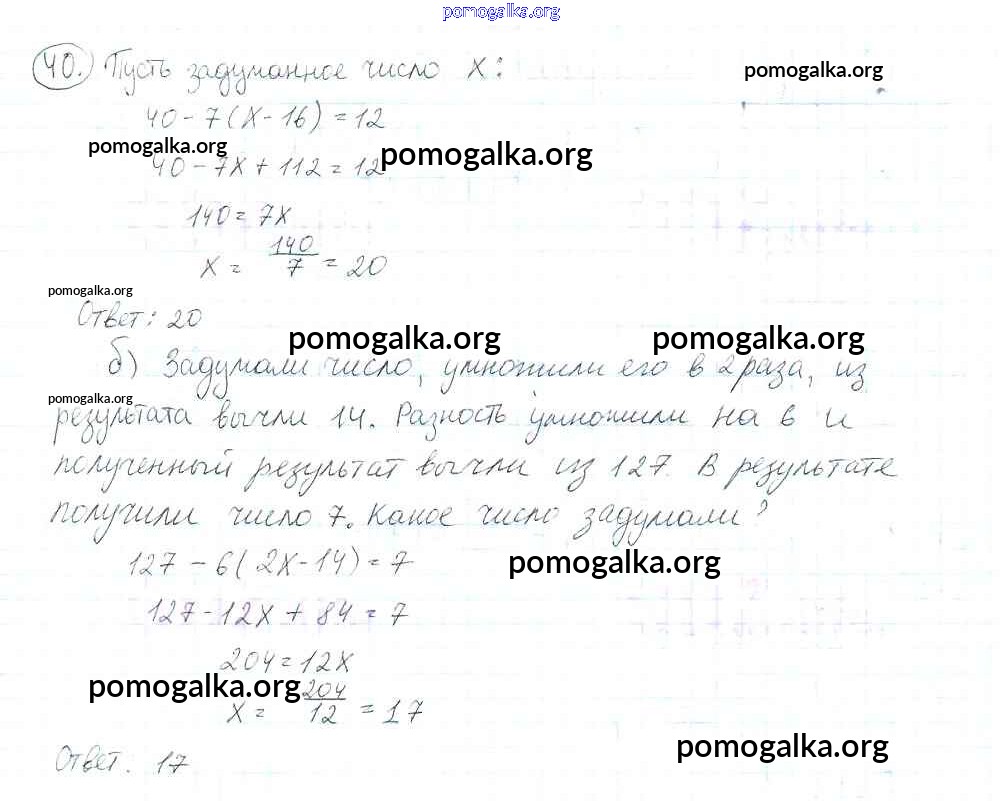 pomogalka.org
40. Пусть задуманное число X:
pomogalka.org
40 - 7(X - 16) = 12
pomogalka.org
pomogalka.org
40 - 7X + 112 = 12
140 = 7X
X = 140/7 = 20
pomogalka.org
Ответ: 20
pomogalka.org
pomogalka.org
б) Задумали число, умножили его в 2 раза, из
pomogalka.org
результата вычли 14. Разность умножили на 6 и
полученный результат вычли из 127. В результате
получили число 7. Какое число задумали?
127 - 6(2X - 14) = 7
pomogalka.org
127 - 12X + 84 = 7
204 = 12X
pomogalka.org
X = 204/12 = 17
pomogalka.org
Ответ. 17